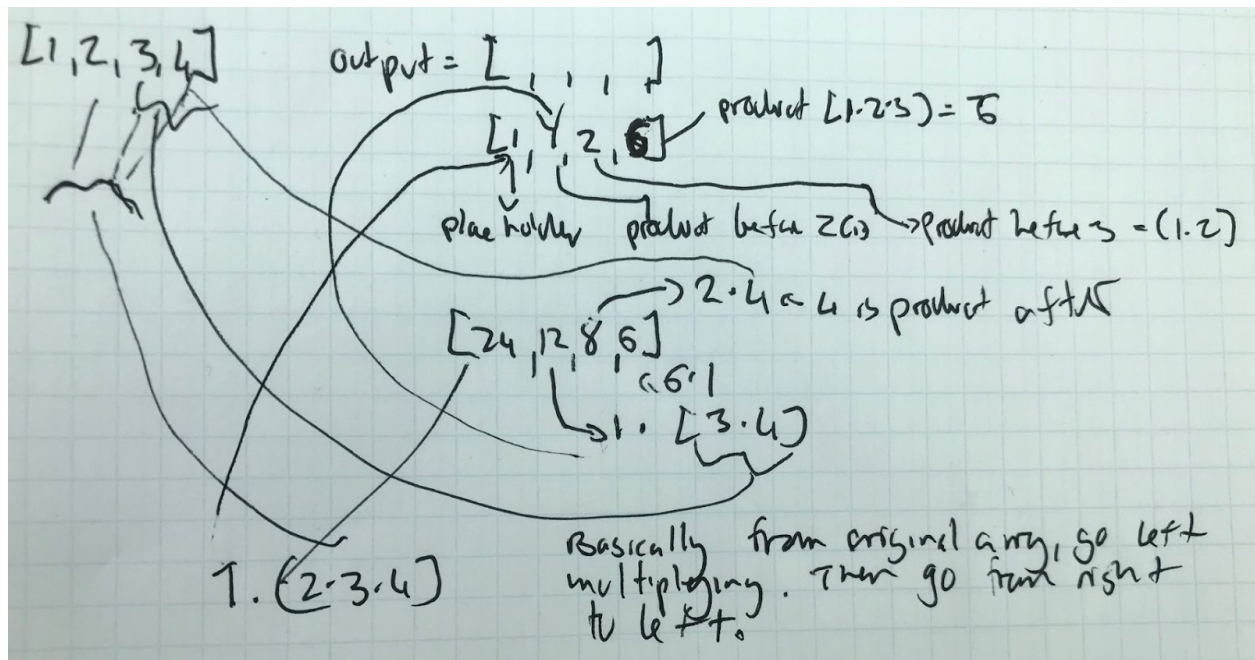 [1,2,3,4]
output = [ , , , ]
[1,1,2,6]
product [1.2.3) = 6
place holder
product before 2(1)
product before 3 = (1.2)
2.4
4 is product after
[24,12,8,6]
6.1
1. [3.4]
1. (2.3.4)
Basically from original array, go left
multiplying. Then go from right
to left.